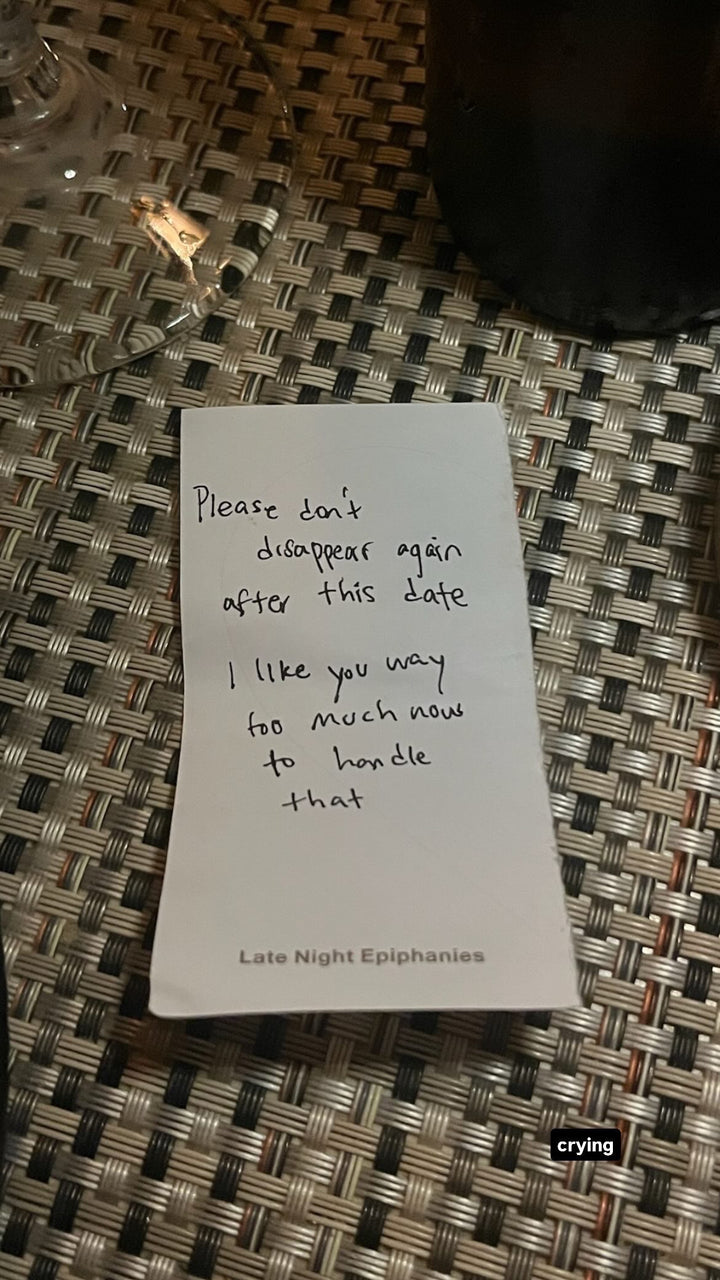 Please don't
disappear again
after this date
I like you way
too much now
to handle
that
Late Night Epiphanies
crying